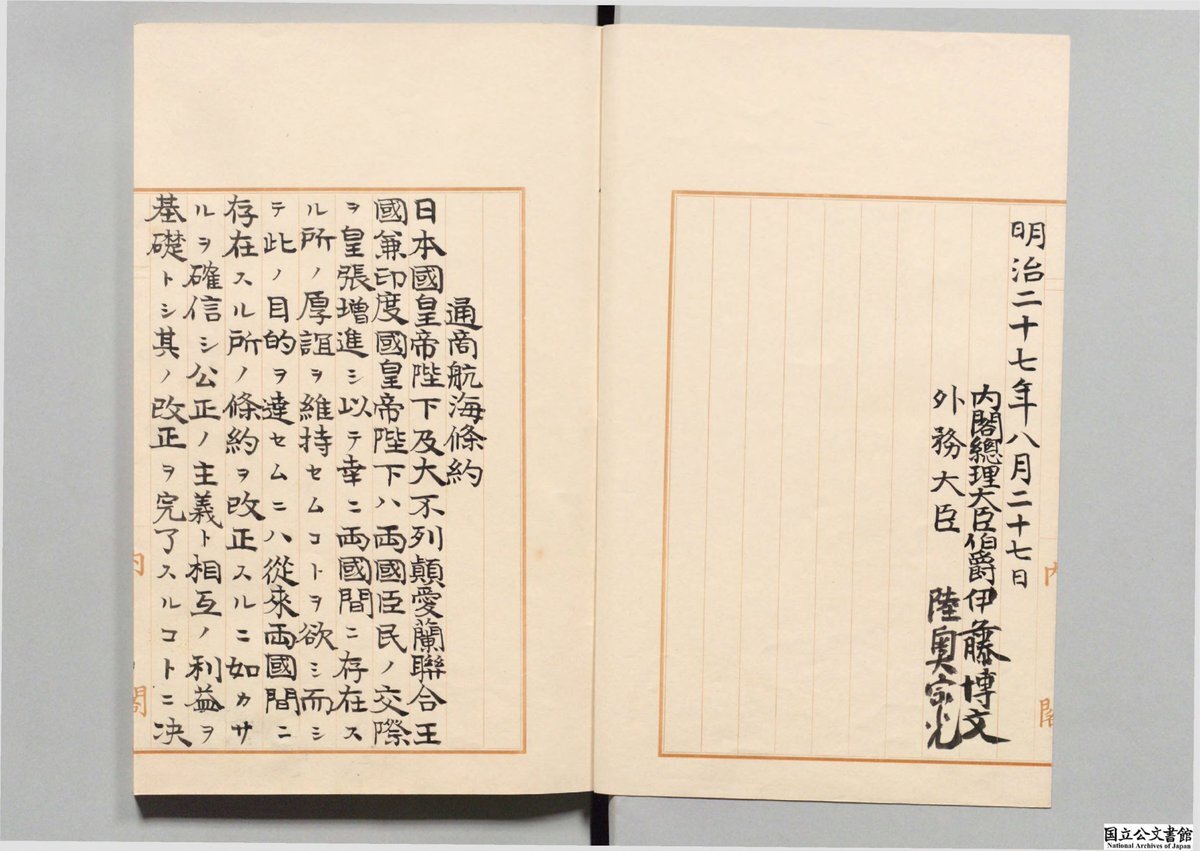 明治二十七年八月二十七日
内閣總理大臣伯爵伊藤博文
外務大臣 陸奥宗光
通商航海條約
日本國皇帝陛下及大不列顛愛蘭聯合王
國兼印度國皇帝陛下ハ両國臣民ノ交際
ヲ皇張増進シ以テ幸ニ両國間ニ存在ス
ル所ノ厚誼ヲ維持セムコトヲ欲シ而シ
テ此ノ目的ヲ達セムニハ從來両國間ニ
存在スル所ノ條約ヲ改正スルニ如カサ
ルヲ確信シ公正ノ主義ト相互ノ利益ヲ
基礎トシ其ノ改正ヲ完了スルコトニ决
内閣
国立公文書館
National Archives of Japan